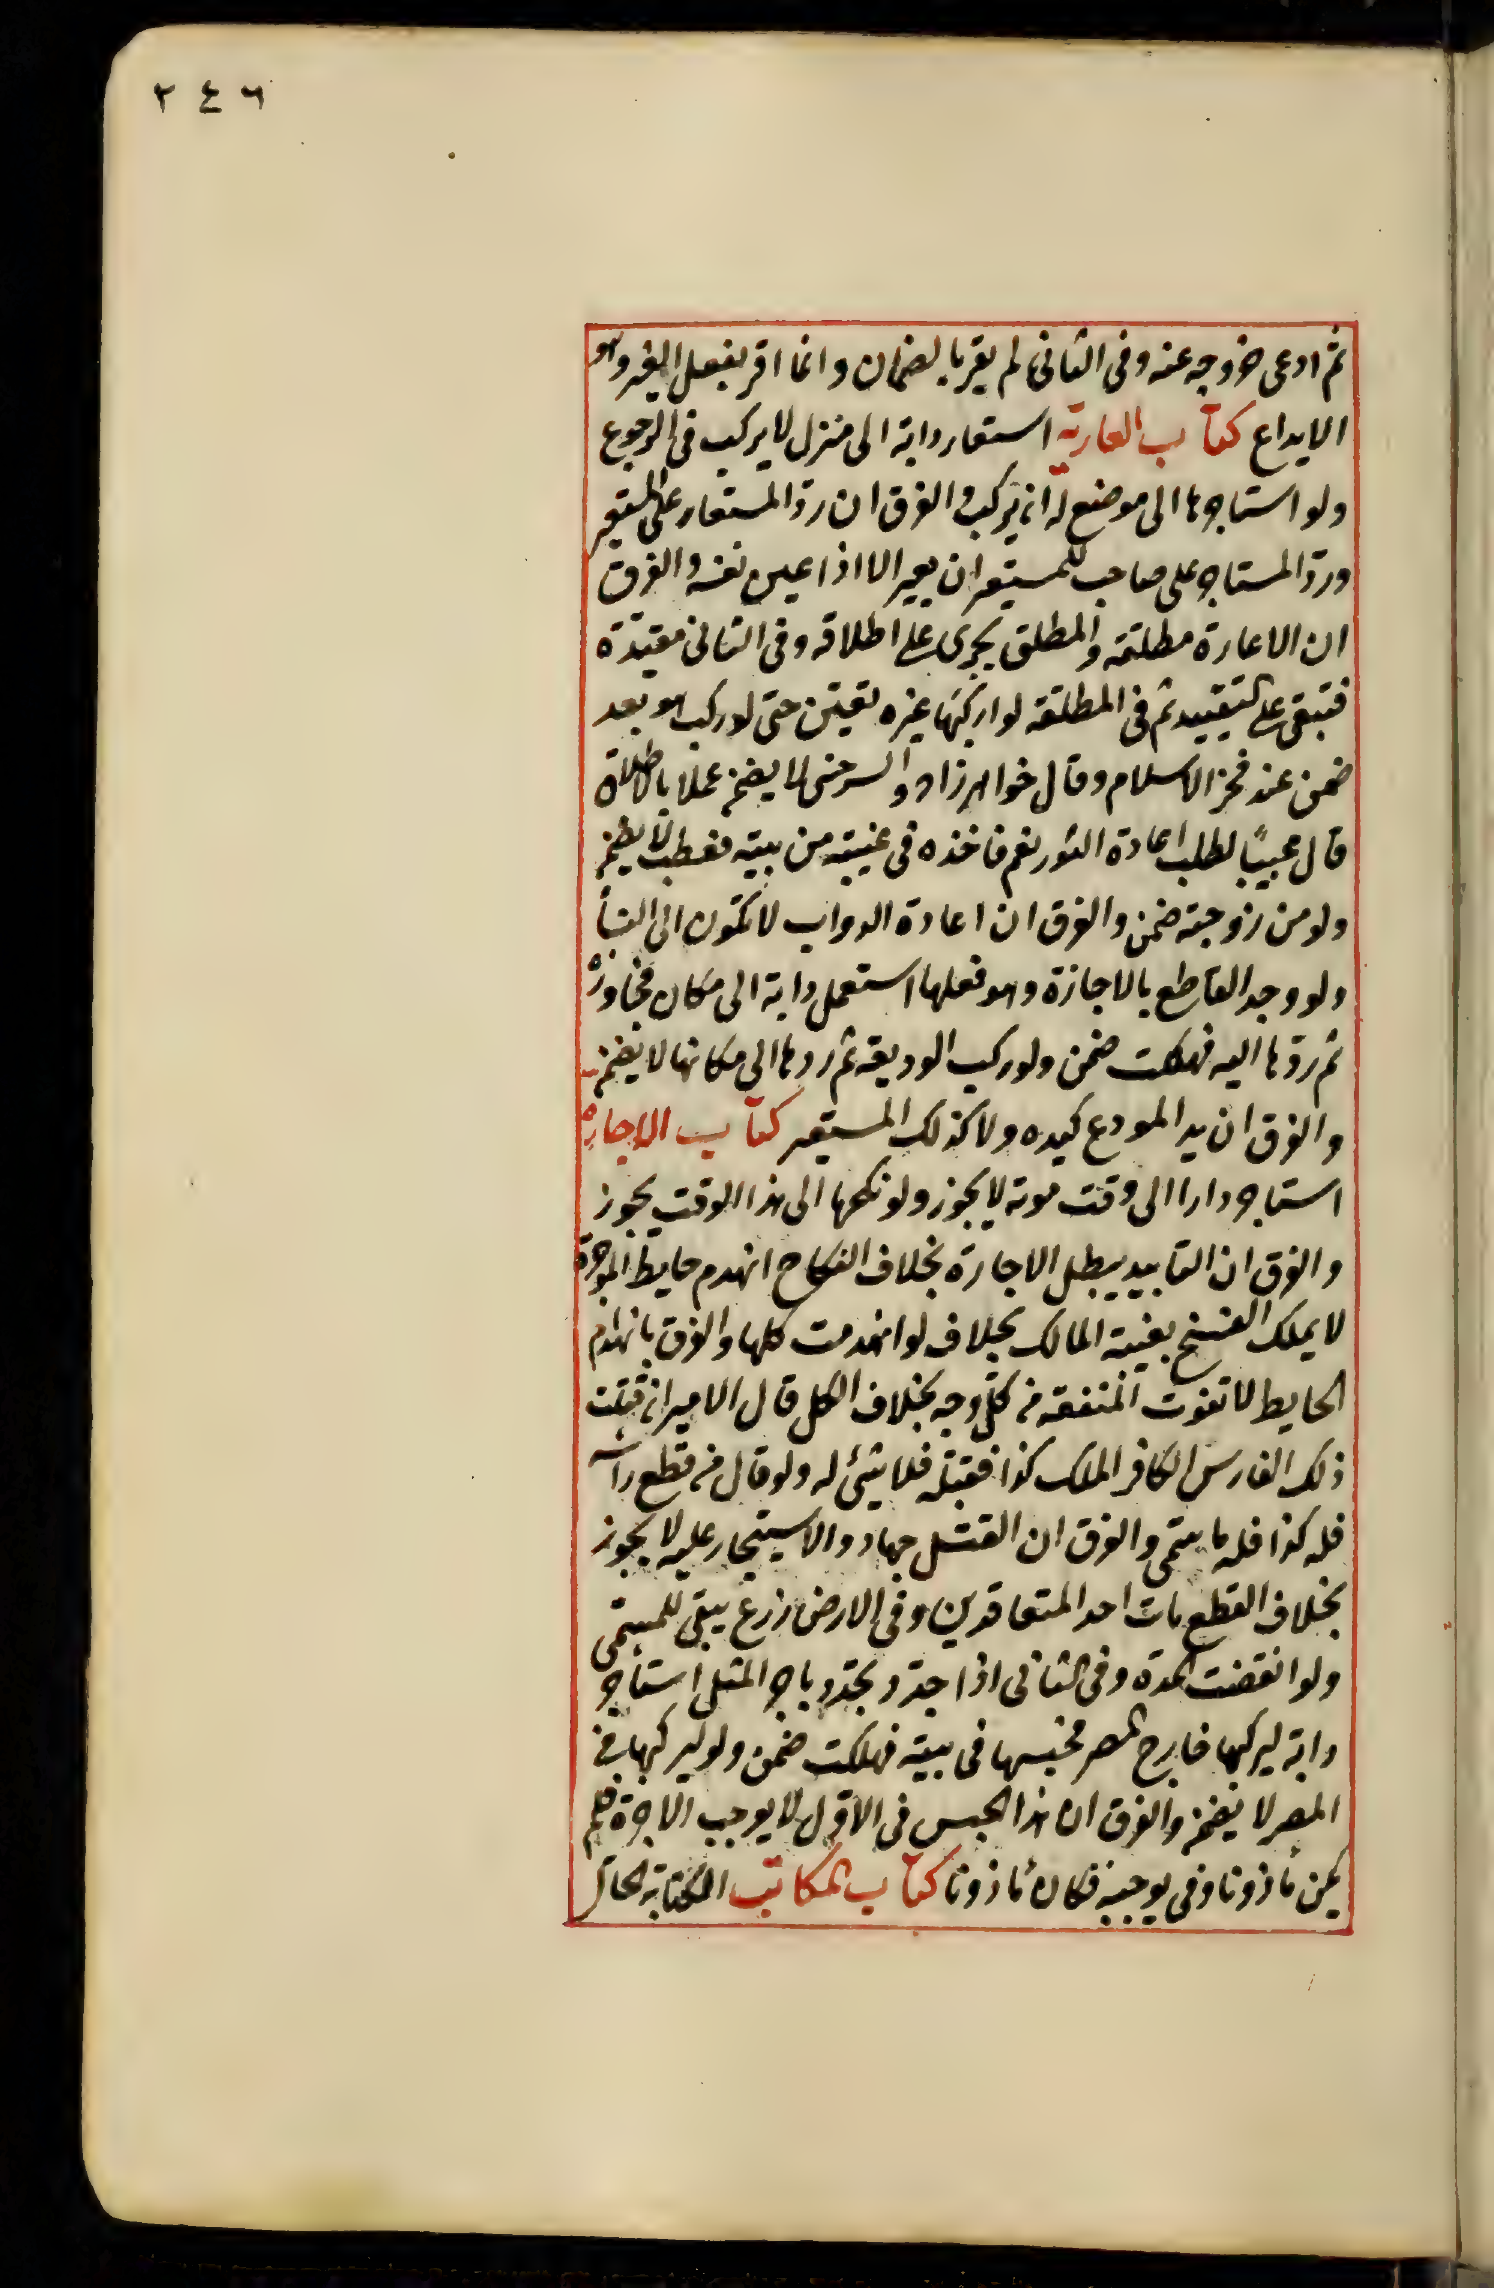 ٢٤٦
ثم ادعى خروجه عنه وفى الثانى لم يقر بالضمان وانما اقر بفعل الغير وهو
الايداع كتاب العارية استعار دابة الى منزل لا يركب فى الرجوع
ولو استاجرها الى موضع له ان يركب والفرق ان رد المستعار على المستعير
ورد المستاجر على صاحب للمستعير ان يعير الا اذا عين نفسه والفرق
ان الاعارة مطلقة والمطلق يجرى على اطلاقه وفى الثانى مقيدة
فتبقى على التقييد ثم فى المطلقة لو اركبها غيره تعين حتى لو ركب هو بعد
ضمن عند فخر الاسلام وقال خواهر زاده والسرخسى لا يضمن عملا باطلاقه
قال مجيبًا لطلب اعادة الثور نعم فاخذه فى غيبته من بيته فعطب لا يضمن
ولو من زوجته ضمن والفرق ان اعادة الدواب لا تكون الى النساء
ولو وجد القاطع بالاجازة وهو فعلها استعمل دابة الى مكان فجاوزه
ثم ردها اليه فهلكت ضمن ولو ركب الوديعة ثم ردها الى مكانها لا يضمن
والفرق ان يد المودع كيده ولا كذلك المستعير كتاب الاجاره
استاجر دارا الى وقت موته لا يجوز ولو نكحها الى هذا الوقت يجوز
والفرق ان التابيد يبطل الاجارة بخلاف النكاح انهدم حايط الموجرة
لا يملك الفسخ بغيبة المالك بخلاف لو انهدمت كلها والفرق بانهدام
الحايط لا تفوت المنفعة من كل وجه بخلاف الكل قال الامير ان قتلت
ذلك الفارس الكافر الملك كذا فقتله فلا شئ له ولو قال من قطع راسه
فله كذا فله ما يسمى والفرق ان القتل جهاد والاستيجار عليه لا يجوز
بخلاف القطع مات احد المتعاقدين وفى الارض زرع يبقى للمسمى
ولو انقضت المدة وفى الثانى اذا جدد يجدد باجر المثل استاجر
دابة ليركبها خارج المصر فحبسها فى بيته فهلكت ضمن ولو ليركبها فى
المصر لا يضمن والفرق ان هذا الحبس فى الاول لا يوجب الاجرة فلم
يكن ماذونا وفى يوجبه فكان ماذونا كتاب المكاتب الكتابة الحال